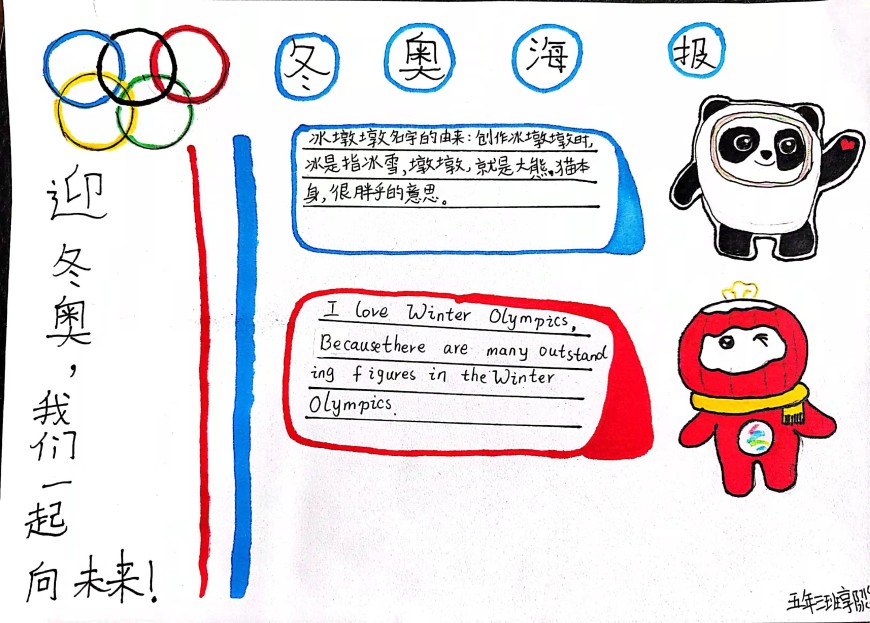 冬奥海报
冰墩墩名字的由来：创作冰墩墩时，
冰是指冰雪，墩墩，就是大熊猫本
身，很胖乎的意思。
I love Winter Olympics,
Becausethere are many outstand
ing figures in the Winter
Olympics.
迎冬奥，我们一起向未来！
五年三班